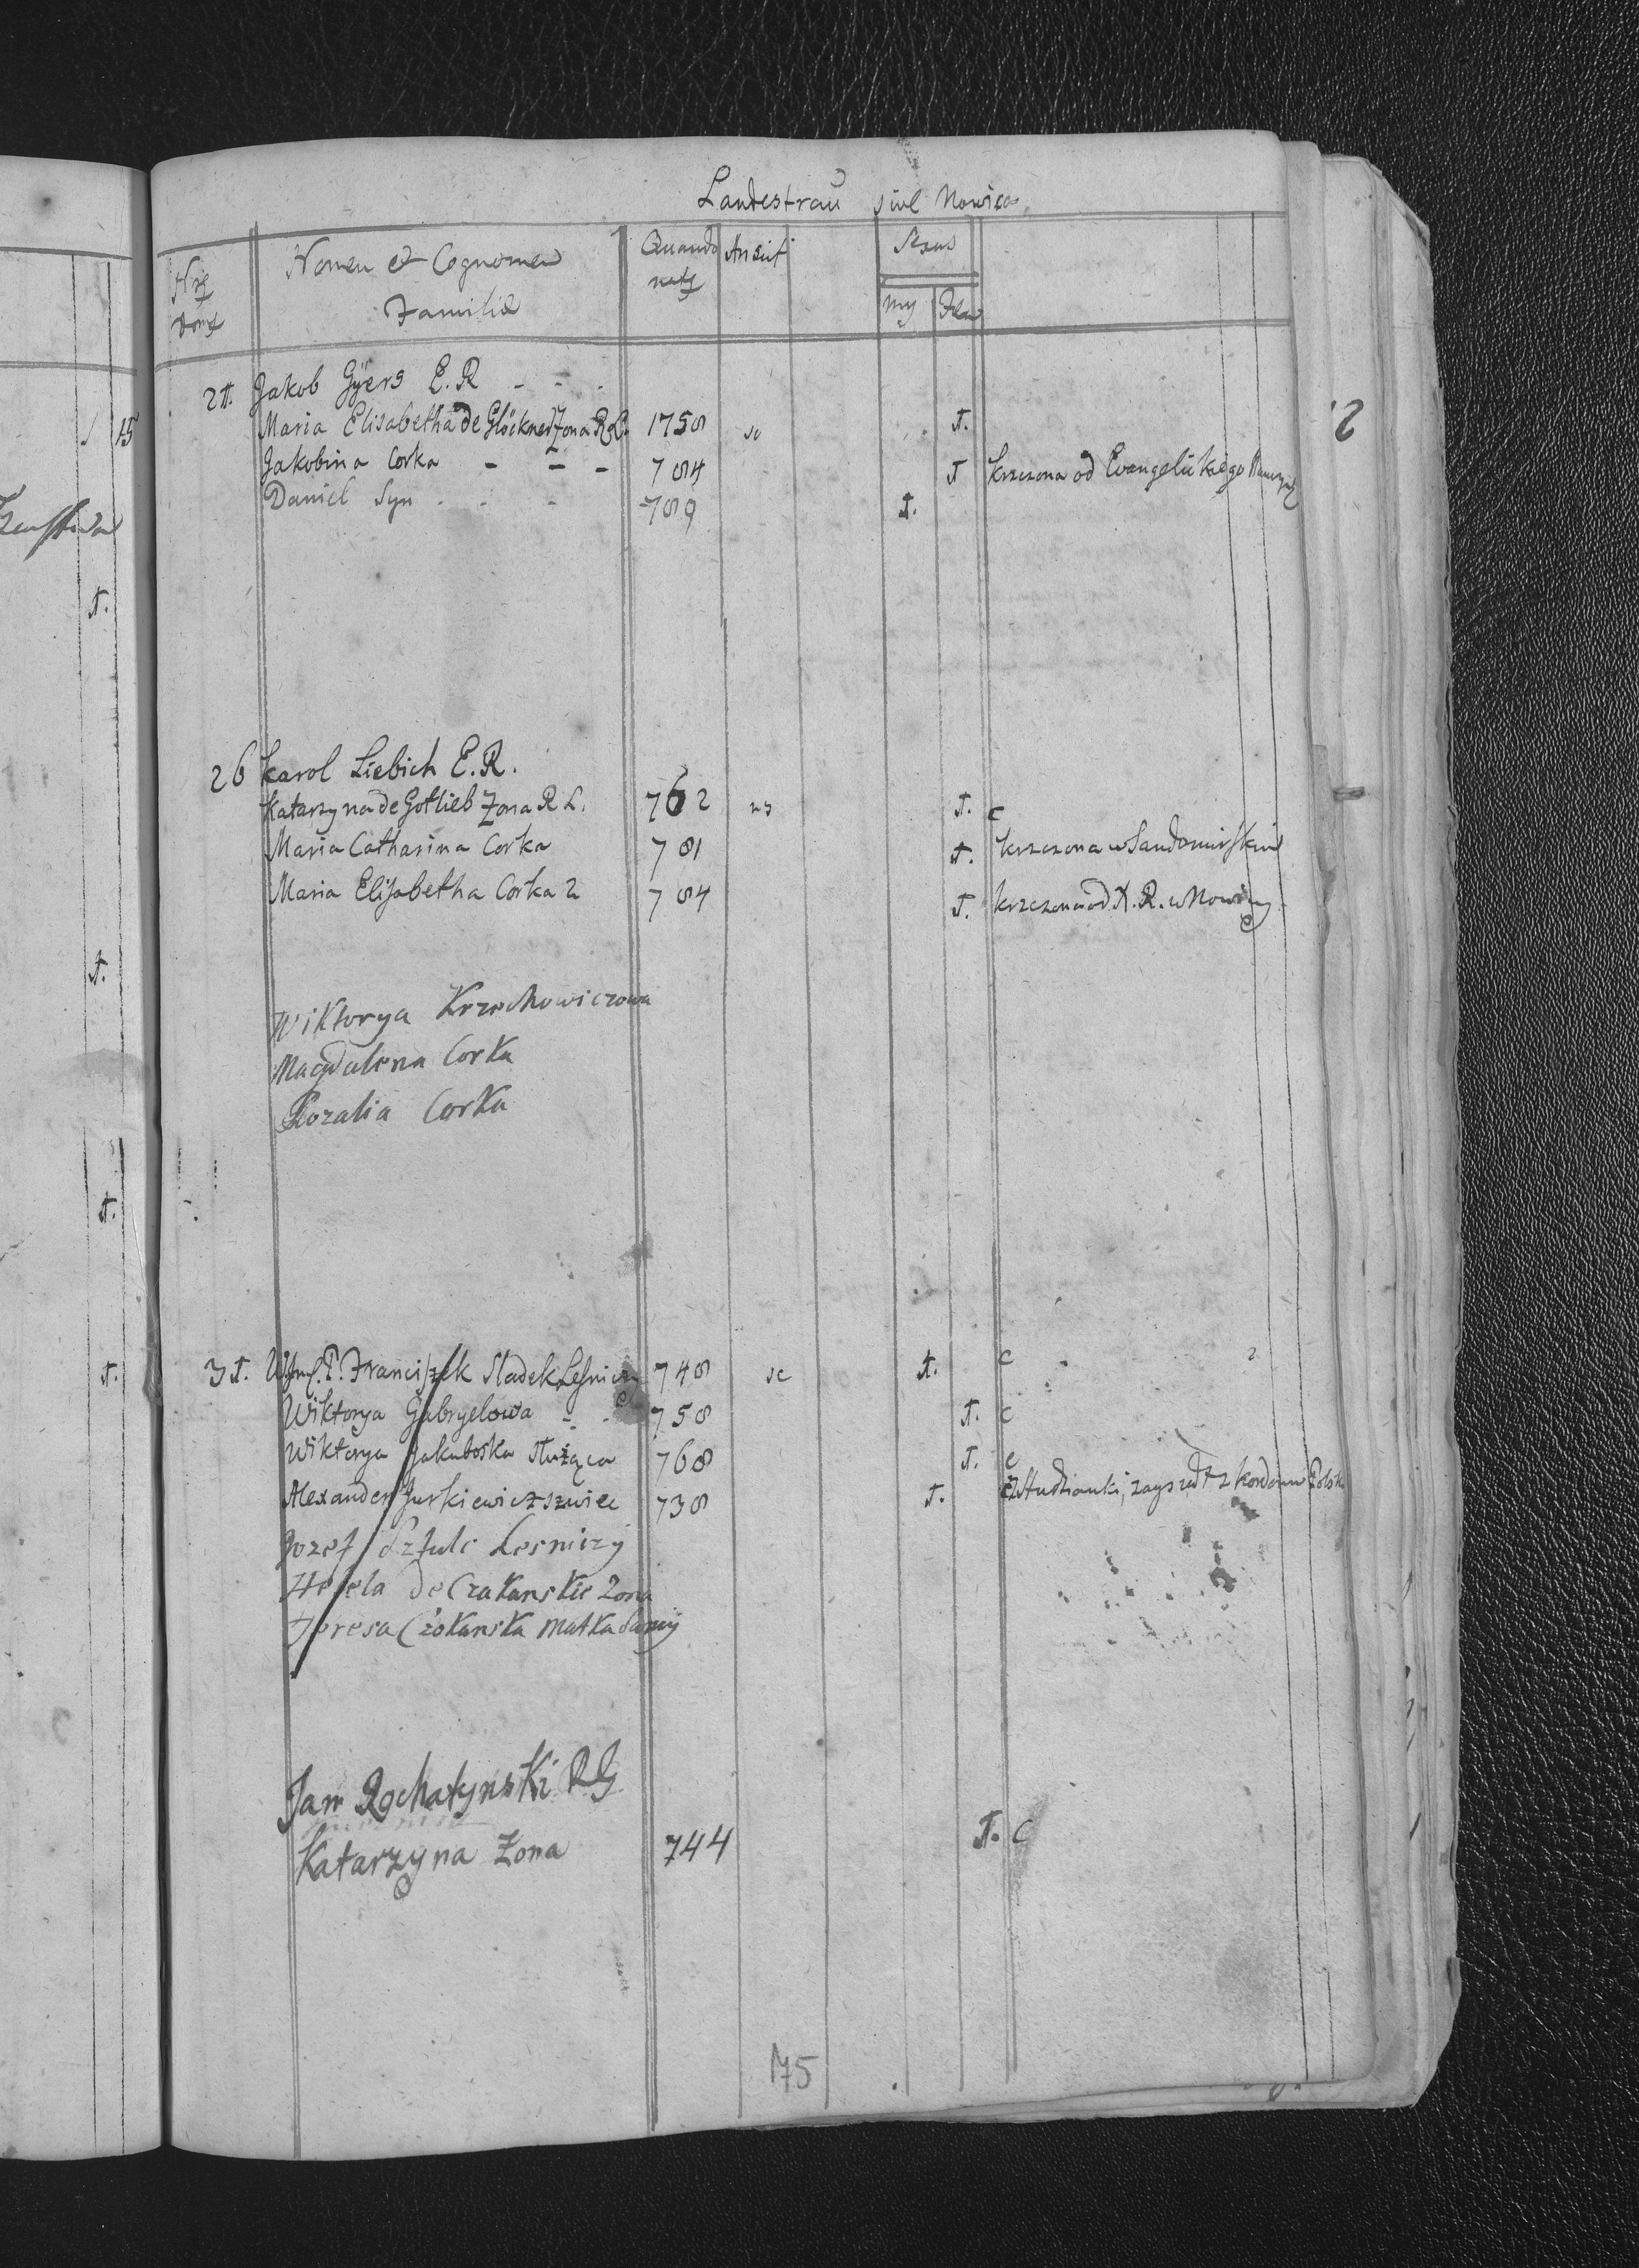 Landestrau sive Nowica
Nomen et Cognomen
Familiæ
Quando
An sciut
Sexus
21. Jakob Gÿers E.R - - -
Maria Elisabetha de Glöckner Zona R.L. 1758 sc 1.
Jakobina Corka - - - 784 1 krzczona od Evangelickiego
Daniel Syn - - - 789 1.
26 Karol Liebich E.R.
Katarzyna de Gotlieb Zona R L. 762 1. c
Maria Catharina Corka 781 1. krzczona w Sandomirskim
Maria Elisabetha Corka 2 784 1. krzczona od X. R. w Nowicy
Wiktorya Krzechowiczowa
Magdalena Corka
Rozalia Corka
31. Franciszek Sladek Leśniczy 748 sc 1. c
Wiktorya Gabryelowa - - 758 1. c
Wiktorya Jakuboska służąca 768 1. c
Alexander Jurkiewicz szwiec 738 1. zaszedł z kordonu Polsk
Jozef Sztulc Lesniczy
Helela de Czakanskie Zona
Teresa Czokanska Matka
Jan Rochatynski R G
Katarzyna Zona 744 1. c
75